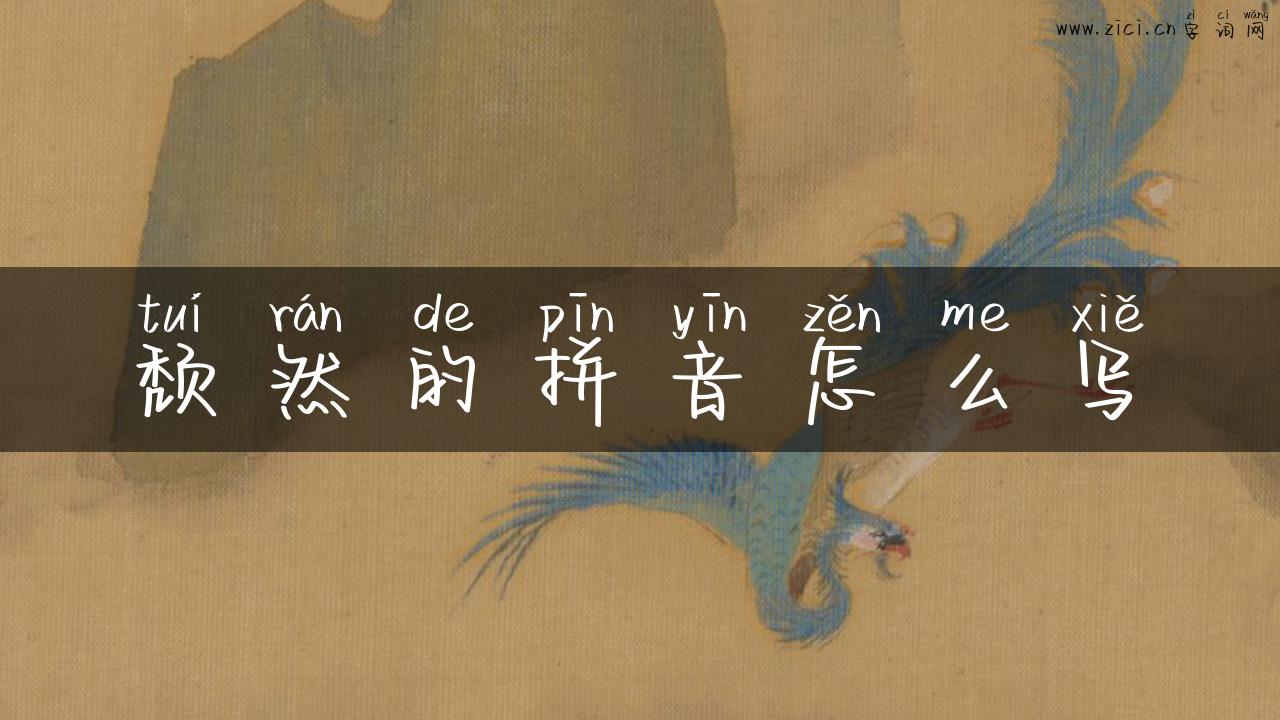 zì cí wǎng
www.zici.cn 字词网
tuí rán de pīn yīn zěn me xiě
颓然的拼音怎么写